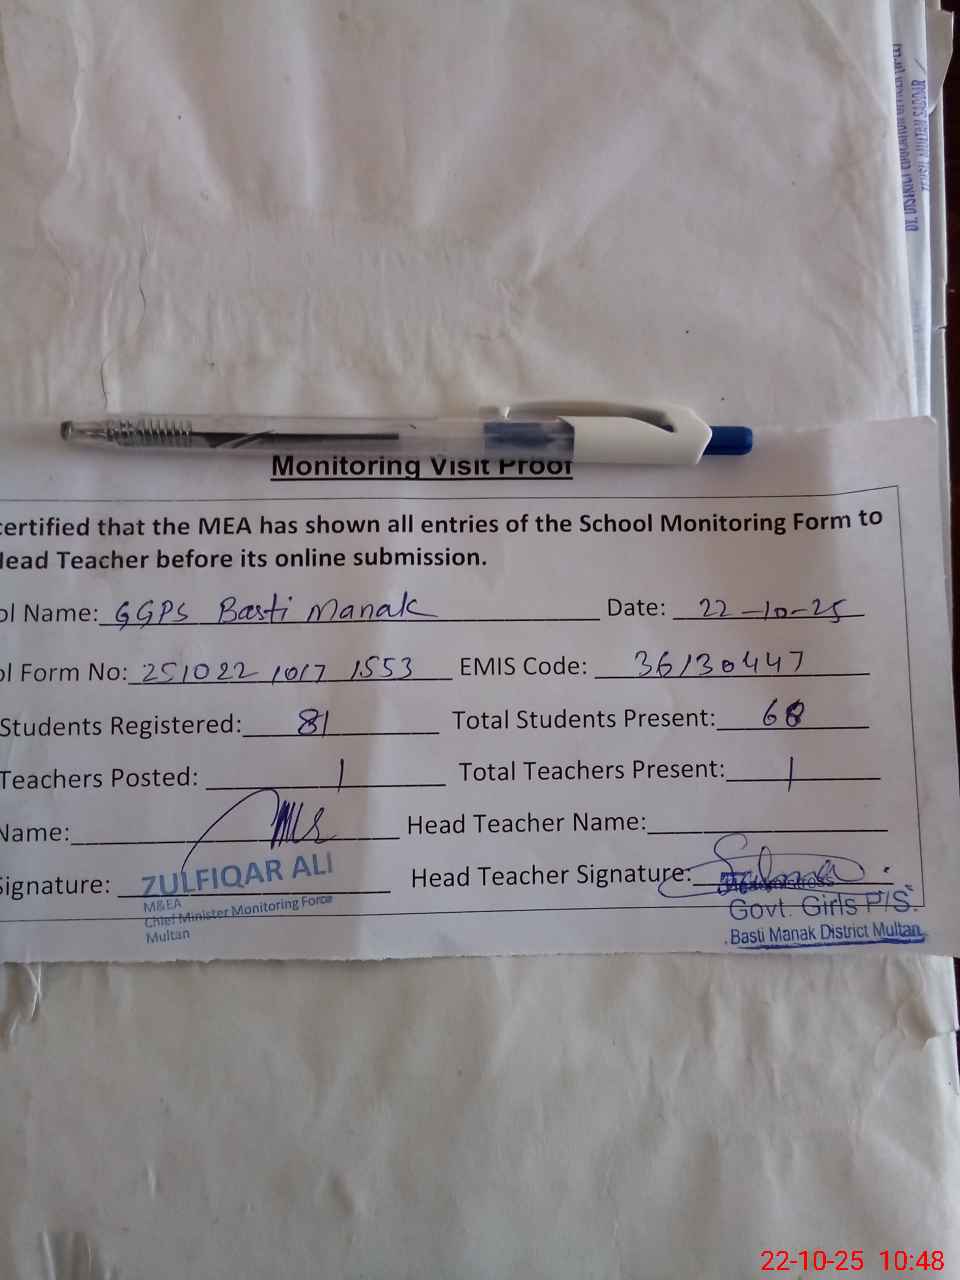 DY. DISTRICT EDUCATION OFFICER
TEHSIL MULTAN SADDAR
Monitoring Visit Proof
certified that the MEA has shown all entries of the School Monitoring Form to
Head Teacher before its online submission.
ol Name: GGPS Basti Manak Date: 22-10-25
ol Form No: 251022 1017 1553 EMIS Code: 36130447
Students Registered: 81 Total Students Present: 68
Teachers Posted: 1 Total Teachers Present: 1
Name: Head Teacher Name:
Signature: ZULFIQAR ALI Head Teacher Signature:
M&EA
Chief Minister Monitoring Force
Multan
Govt. Girls P/S.
Basti Manak District Multan
22-10-25 10:48